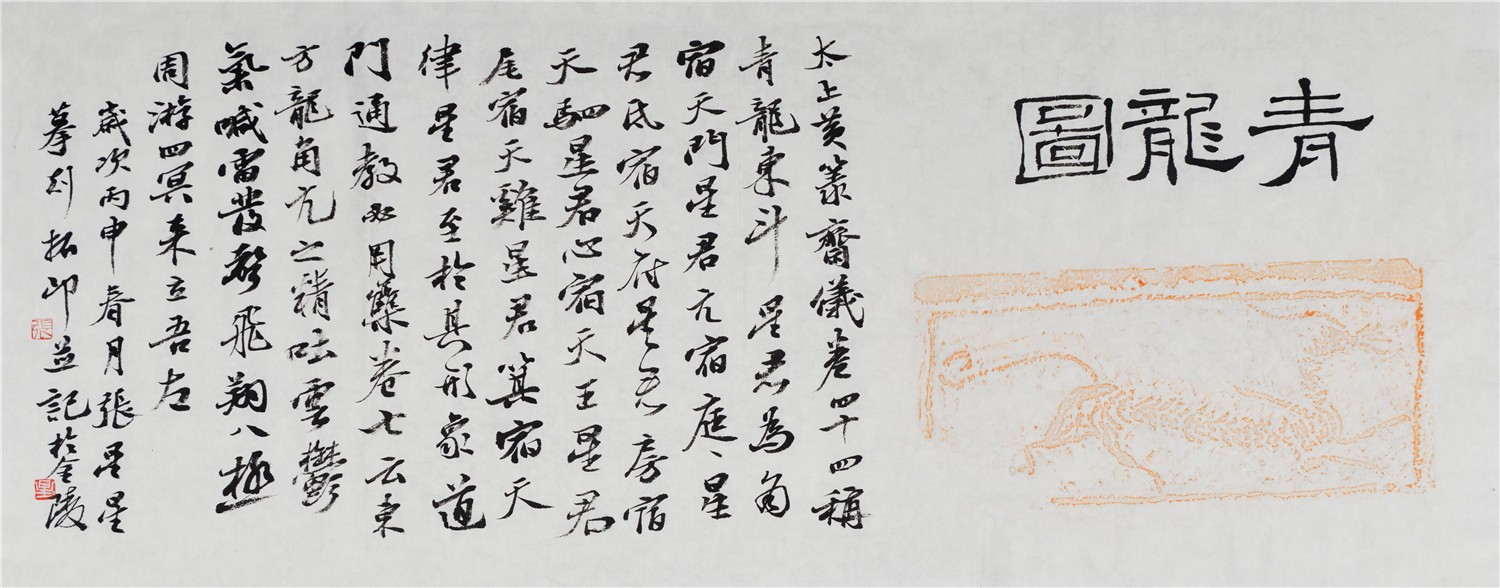 青龍圖
太上黃籙齋儀卷四十四稱
青龍東斗星君為角
宿天門星君亢宿庭庭星
君氐宿天府星君房宿
天駟星君心宿天王星君
尾宿天雞星君箕宿天
律星君至於其形象道
門通教必用集卷七云東
方龍角亢之精吐雲鬱
氣喊雷發聲飛翔八極
周游四冥來立吾左
歲次丙申春月張星星
摹刻拓印並記於金陵
張
星